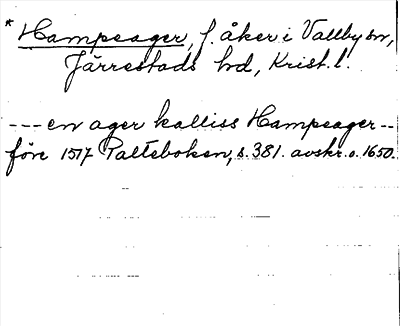 * Hampeager, f. åker i Vallby sn,
Järrestads hd, Krist. l.
--- en ager kalliss Hampeager --
före 1517 Palteboken, s. 381. avskr. o. 1650.